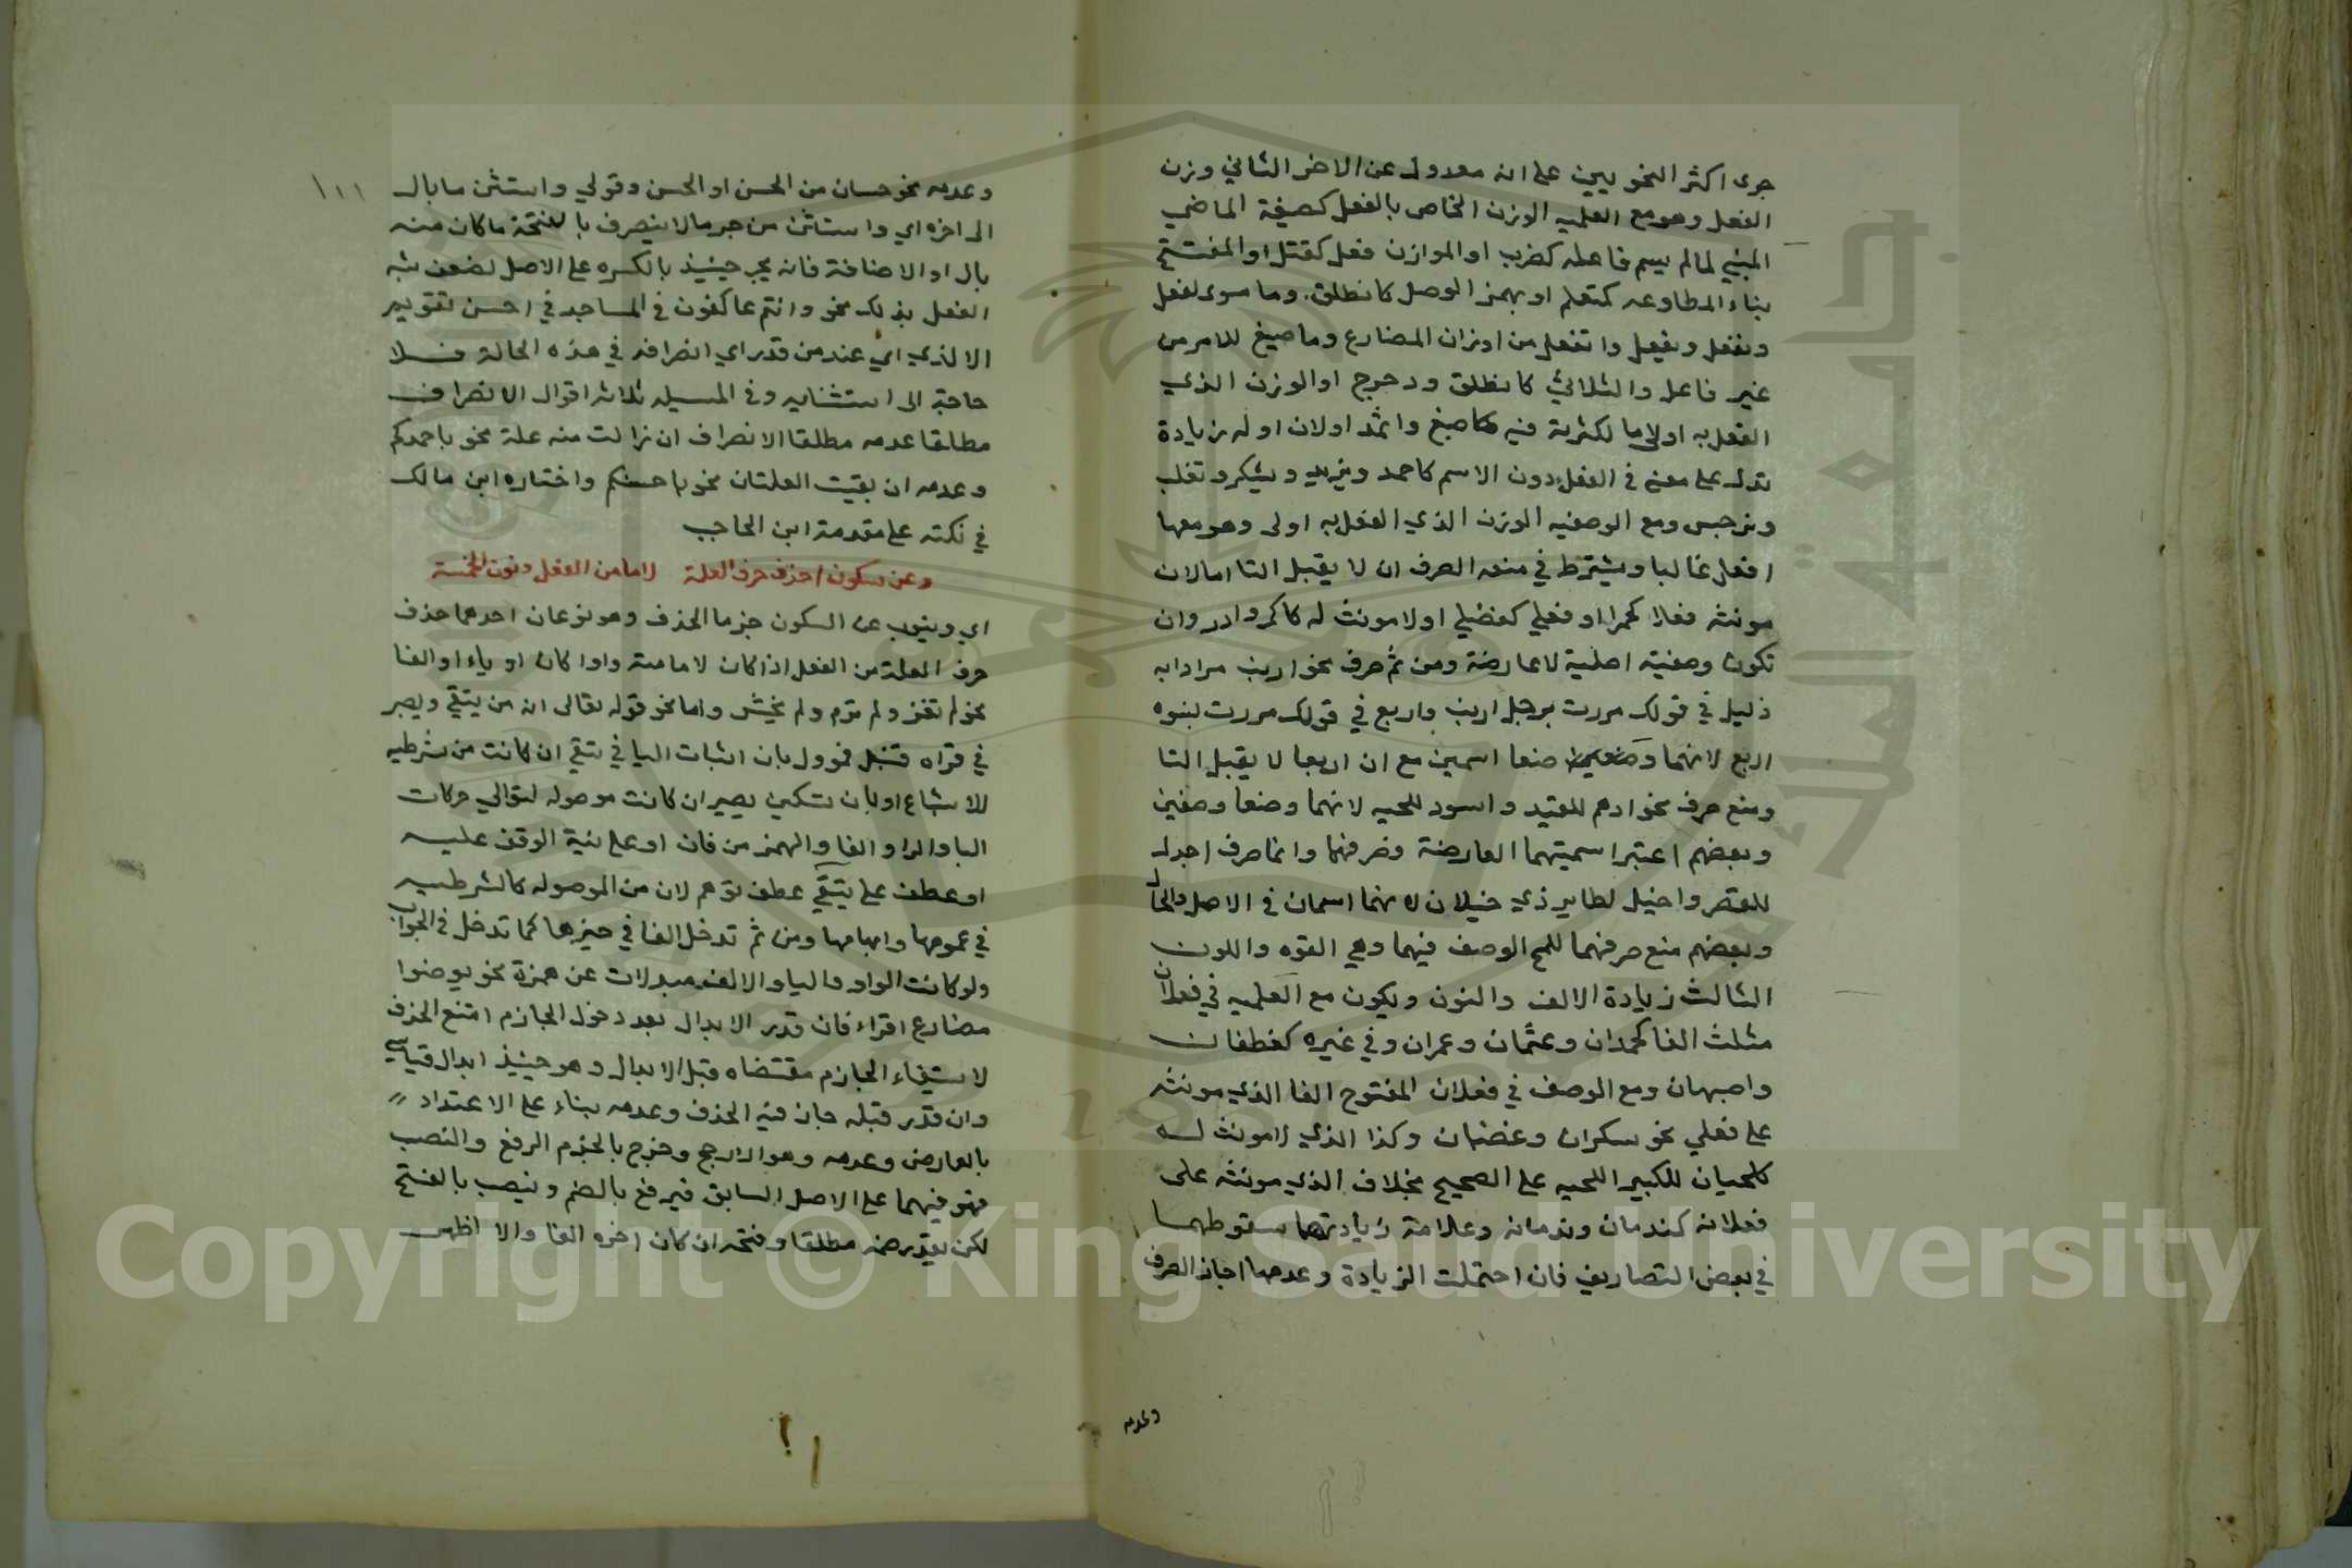 جرى اكثر النحويين على انه معدول عن الاخر الثاني وزن
الفعل وهو مع العلميه الوزن الخاص بالفعل كصيغة الماضي
المبني لما لم يسم فاعله كضرب او الموازن فعل كقتل او المفتتح
بتاء المطاوعه كتعلم او بهمز الوصل كانطلق. وما سوى لفعل
ونفعل ويفعل واتفعل من اوزان المضارع وما صيغ للامر من
غير فاعل والثلاثي كانطلق ودحرج او الوزن الذي
الفعل به اولى اما لكثرته فيه كاصبغ واثمد اولان اوله زيادة
تدل على معنى في الفعل دون الاسم كاحمد ويزيد ويشكر وتغلب
ونرجس ومع الوصفيه الوزن الذي الفعل به اولى وهو معها
افعل غالبا ويشترط في منعه الصرف ان لا يقبل التا امالان
مونثه فعلا كحمرا او فعلي كفضلي اولا مونث له كاكمر وادر وان
تكون وصفيته اصلية لا عارضة ومن ثم صرف نحو ارنب مرادا به
ذليل في قولك مررت برجل ارنب واربع في قولك مررت بنسوه
اربع لانهما وضعا اسمين مع ان اربعا لا يقبل التا
ومنع صرف نحو ادهم للقيد واسود للحيه لانهما وضعا وصفين
وبعضهم اعتبر اسميتهما العارضة فصرفهما وانما صرف اجدل
للصقر واخيل لطاير ذي خيلان لانهما اسمان في الاصل والحال
وبعضهم منع صرفهما للمح الوصف فيهما وهي القوه واللون
الثالث زيادة الالف والنون ويكون مع العلميه في فعلان
مثلث الفا كحمدان وعثمان وعمران وفي غيره كغطفان
واصبهان ومع الوصف في فعلان المفتوح الفا الذي مونثه
على فعلي نحو سكران وغضبان وكذا الذي لا مونث له
كلحيان للكبير اللحيه على الصحيح بخلاف الذي مونثه على
فعلانه كندمان وندمانه وعلامة زيادتهما سقوطهما
في بعض التصاريف فان احتملت الزيادة وعدمها جاز الصرف
وعدمه
وعدمه نحو حسان من الحسن او الحس وقولي واستثن ما بال
الى اخره اي واستثن من جر ما لا ينصرف بالفتحة ماكان منه
بال او الاضافة فانه يجر حينيذ بالكسره على الاصل لضعف شبه
الفعل بذلك نحو وانتم عاكفون في المساجد في احسن تقويم
الا الذي اي عند من قدر اي انصرافه في هذه الحالة فلا
حاجة الى استثنايه وفي المسيله ثلاثه اقوال الانصراف
مطلقا عدمه مطلقا الانصراف ان زالت منه علة نحو باحمدكم
وعدمه ان بقيت العلتان نحو باحسنكم واختاره ابن مالك
في نكته على مقدمة ابن الحاجب
وعن سكون احذف حرف العلة لاما من الفعل ونون الخمسة
اي وينوب عن السكون جزما الحذف وهو نوعان احدهما حذف
حرف العلة من الفعل اذا كان لاما منه واوا كان او ياء او الفا
نحو لم تغز ولم ترم ولم يخش واما نحو قوله تعالى انه من يتقي ويصبر
في قراه قنبل فموول بان اثبات اليا في يتقي ان كانت من شرطيه
للاشباع او بان تسكين يصبر ان كانت موصوله لتوالي حركات
البا والرا والفا والهمز من فان او على نية الوقف عليه
او عطف على يتقي عطف توهم لان من الموصوله كالشرطيه
في عمومها وابهامها ومن ثم تدخل الفا في حيزها كما تدخل في الجواب
ولو كانت الواو واليا والالف مبدلات عن همزة نحو يوضوا
مضارع اقراء فان قدر الابدال بعد دخول الجازم امتنع الحذف
لاستيفاء الجازم مقتضاه قبل الابدال وهو حينيذ ابدال قياسي
وان قدر قبله جاز فيه الحذف وعدمه بناء على الاعتداد
بالعارض وعدمه وهو الارجح وخرج بالجزم الرفع والنصب
فهو فيهما على الاصل السابق فيرفع بالضم وينصب بالفتح
لكن يقدر ضمه مطلقا وفتحه ان كان اخره الفا والا اظهر
١١١
Copyright © King Saud University